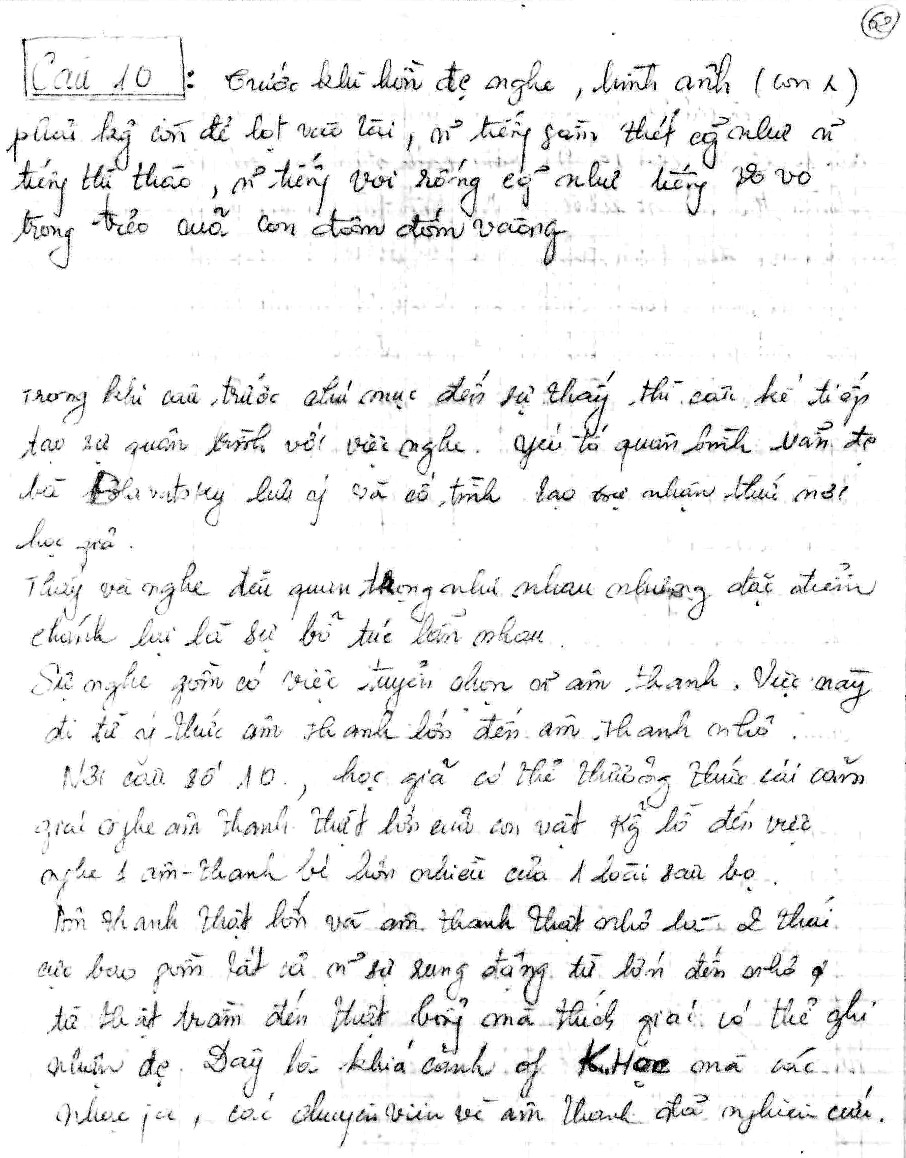 62
Câu 10 : Trước khi hồn đc nghe, hình ảnh (con λ)
phải kg còn để lọt vào tai, n~ tiếng gầm thét cg~ như n~
tiếng thì thào, n~ tiếng voi rống cg~ như tiếng vo vo
trong trẻo của con đom đóm vàng
Trong khi câu trước chú mục đến sự thấy thì câu kế tiếp
tạo sự quân bình với việc nghe. Yếu tố quân bình vẫn đc
bà Blavatsky lưu ý và cố tình tạo sự nhận thức nơi
học giả.
Thấy và nghe đều quan trọng như nhau nhưng đặc điểm
chánh lại là sự bổ túc lẫn nhau.
Sự nghe gồm có việc tuyển chọn n~ âm thanh. Việc này
đi từ ý thức âm thanh lớn đến âm thanh nhỏ.
Nơi câu số 10, học giả có thể thưởng thức cái cảm
giác nghe âm thanh thật lớn của con vật khổng lồ đến việc
nghe 1 âm-thanh bé hơn nhiều của 1 loài sâu bọ.
Âm thanh thật lớn và âm thanh thật nhỏ là 2 thái
cực bao gồm tất cả n~ sự rung động từ lớn đến nhỏ &
từ thật trầm đến thật bổng mà thính giác có thể ghi
nhận đc. Đây là khía cạnh of K.Học mà các
nhạc gia, các chuyên viên về âm thanh đã nghiên cứu.